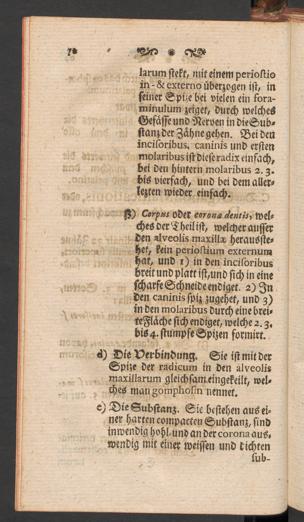 larum stekt, mit einem periostio
in- & externo überzogen ist, in
seiner Spize bei vielen ein fora-
minulum zeiget, durch welches
Gefässe und Nerven in die Sub-
stanz der Zähne gehen. Bei den
incisoribus, caninis und ersten
molaribus ist dise radix einfach,
bei den hintern molaribus 2. 3.
bis vierfach, und bei dem aller-
lezten wieder einfach.
β) Corpus oder corona dentis, wel-
ches der Theil ist, welcher ausser
den alveolis maxillæ herausste-
het, kein periostium externum
hat, und 1) in den incisoribus
breit und platt ist, und sich in eine
scharfe Schneide endiget. 2) In
den caninis spiz zugehet, und 3)
in den molaribus durch eine brei-
te Fläche sich endiget, welche 2. 3.
bis 4. stumpfe Spizen formirt.
d) Die Verbindung. Sie ist mit der
Spize der radicum in den alveolis
maxillarum gleichsam eingekeilt, wel-
ches man gomphosin nennet.
e) Die Substanz. Sie bestehen aus ei-
ner harten compacten Substanz, sind
inwendig hohl und an der corona aus-
wendig mit einer weissen und dichten
sub-